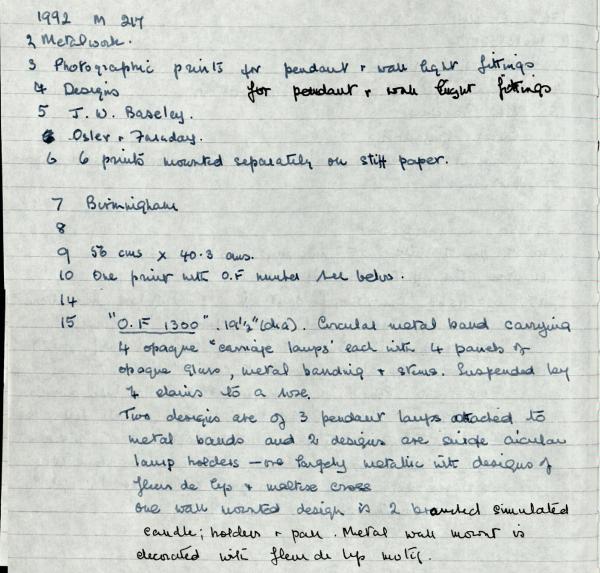 1992 M 217
2 Metalwork.
3 Photographic prints for pendant + wall light fittings
4 Designs for pendant + wall light fittings
5 J. W. Baseley.
Osler + Faraday.
6 6 prints mounted separately on stiff paper.
7 Birmingham
8
9 56 cms x 40.3 cms.
10 One print with O.F number see below.
14
15 "O.F 1300". 19½" (dia). Circular metal band carrying
4 opaque "carriage lamps' each with 4 panels of
opaque glass, metal banding + stems. Suspended by
4 chains to a rose.
Two designs are of 3 pendant lamps attached to
metal bands and 2 designs are single circular
lamp holders – one largely metallic with designs of
fleur de lys + maltese cross
One wall mounted design is 2 branched simulated
candle; holders + pan. Metal wall mount is
decorated with fleur de lys motif.